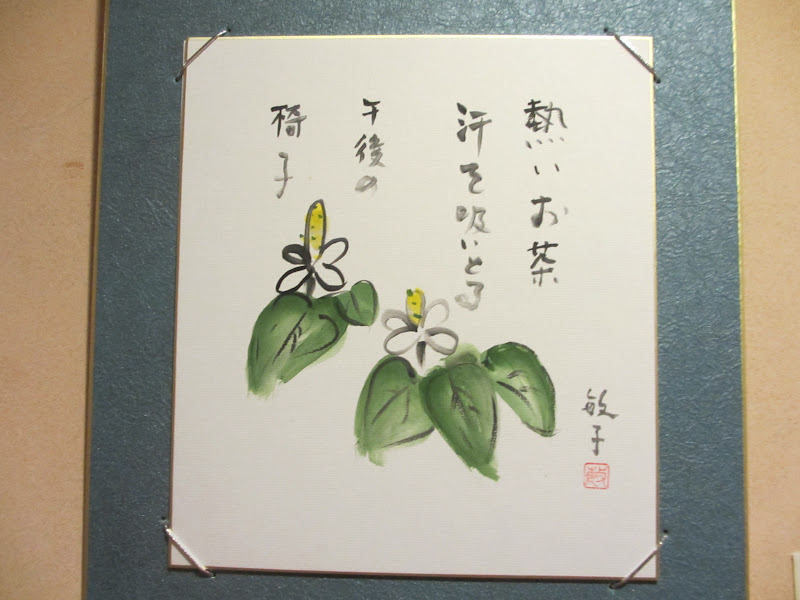 熱いお茶
汗を吸いとる
午後の
椅子
敏子